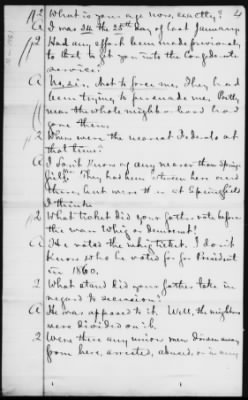 4
Q What is your age now, exactly?
A I was 34 the 25th day of last January.
Q Had any effort been made previously
to that to get you into the Confederate
service?
A No, sir, not to force me. They had
been trying to persuade me. Pretty
near the whole neighborhood had
gone then.
Q Where were the nearest Federals at
that time?
A I don't know of any nearer than Spring-
field. They had been
there, but were then at Springfield
I think.
Q What ticket did your father vote before
the war Whig or democrat?
A He voted the whig ticket. I don't
know who he voted for for President
in 1860.
Q What stand did your father take in
regard to secession?
A He was opposed to it. Well, the neighbors
were divided on it.
Q Were there any union men driven away
from here, arrested, abused, or in any